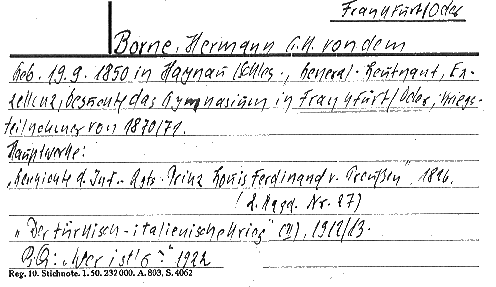 Frankfurt/Oder
Borne, Hermann G. H. von dem
Geb. 19.9.1850 in Haynau (Schles., General-Leutnant, Ex-
zellenz, besuchte das Gymnasium in Frankfurt/Oder, Kriegs-
teilnehmer von 1870/71.
Hauptwerke:
"Geschichte d. Inf.-Rgts. Prinz Louis Ferdinand v. Preußen", 1896.
(2. Magd. Nr. 27)
"Der türkisch-italienische Krieg" (II), 1912/13.
"Wer ist's" 1922
Reg. 10. Stichnote. 1. 50. 232000. A. 803, S. 4062